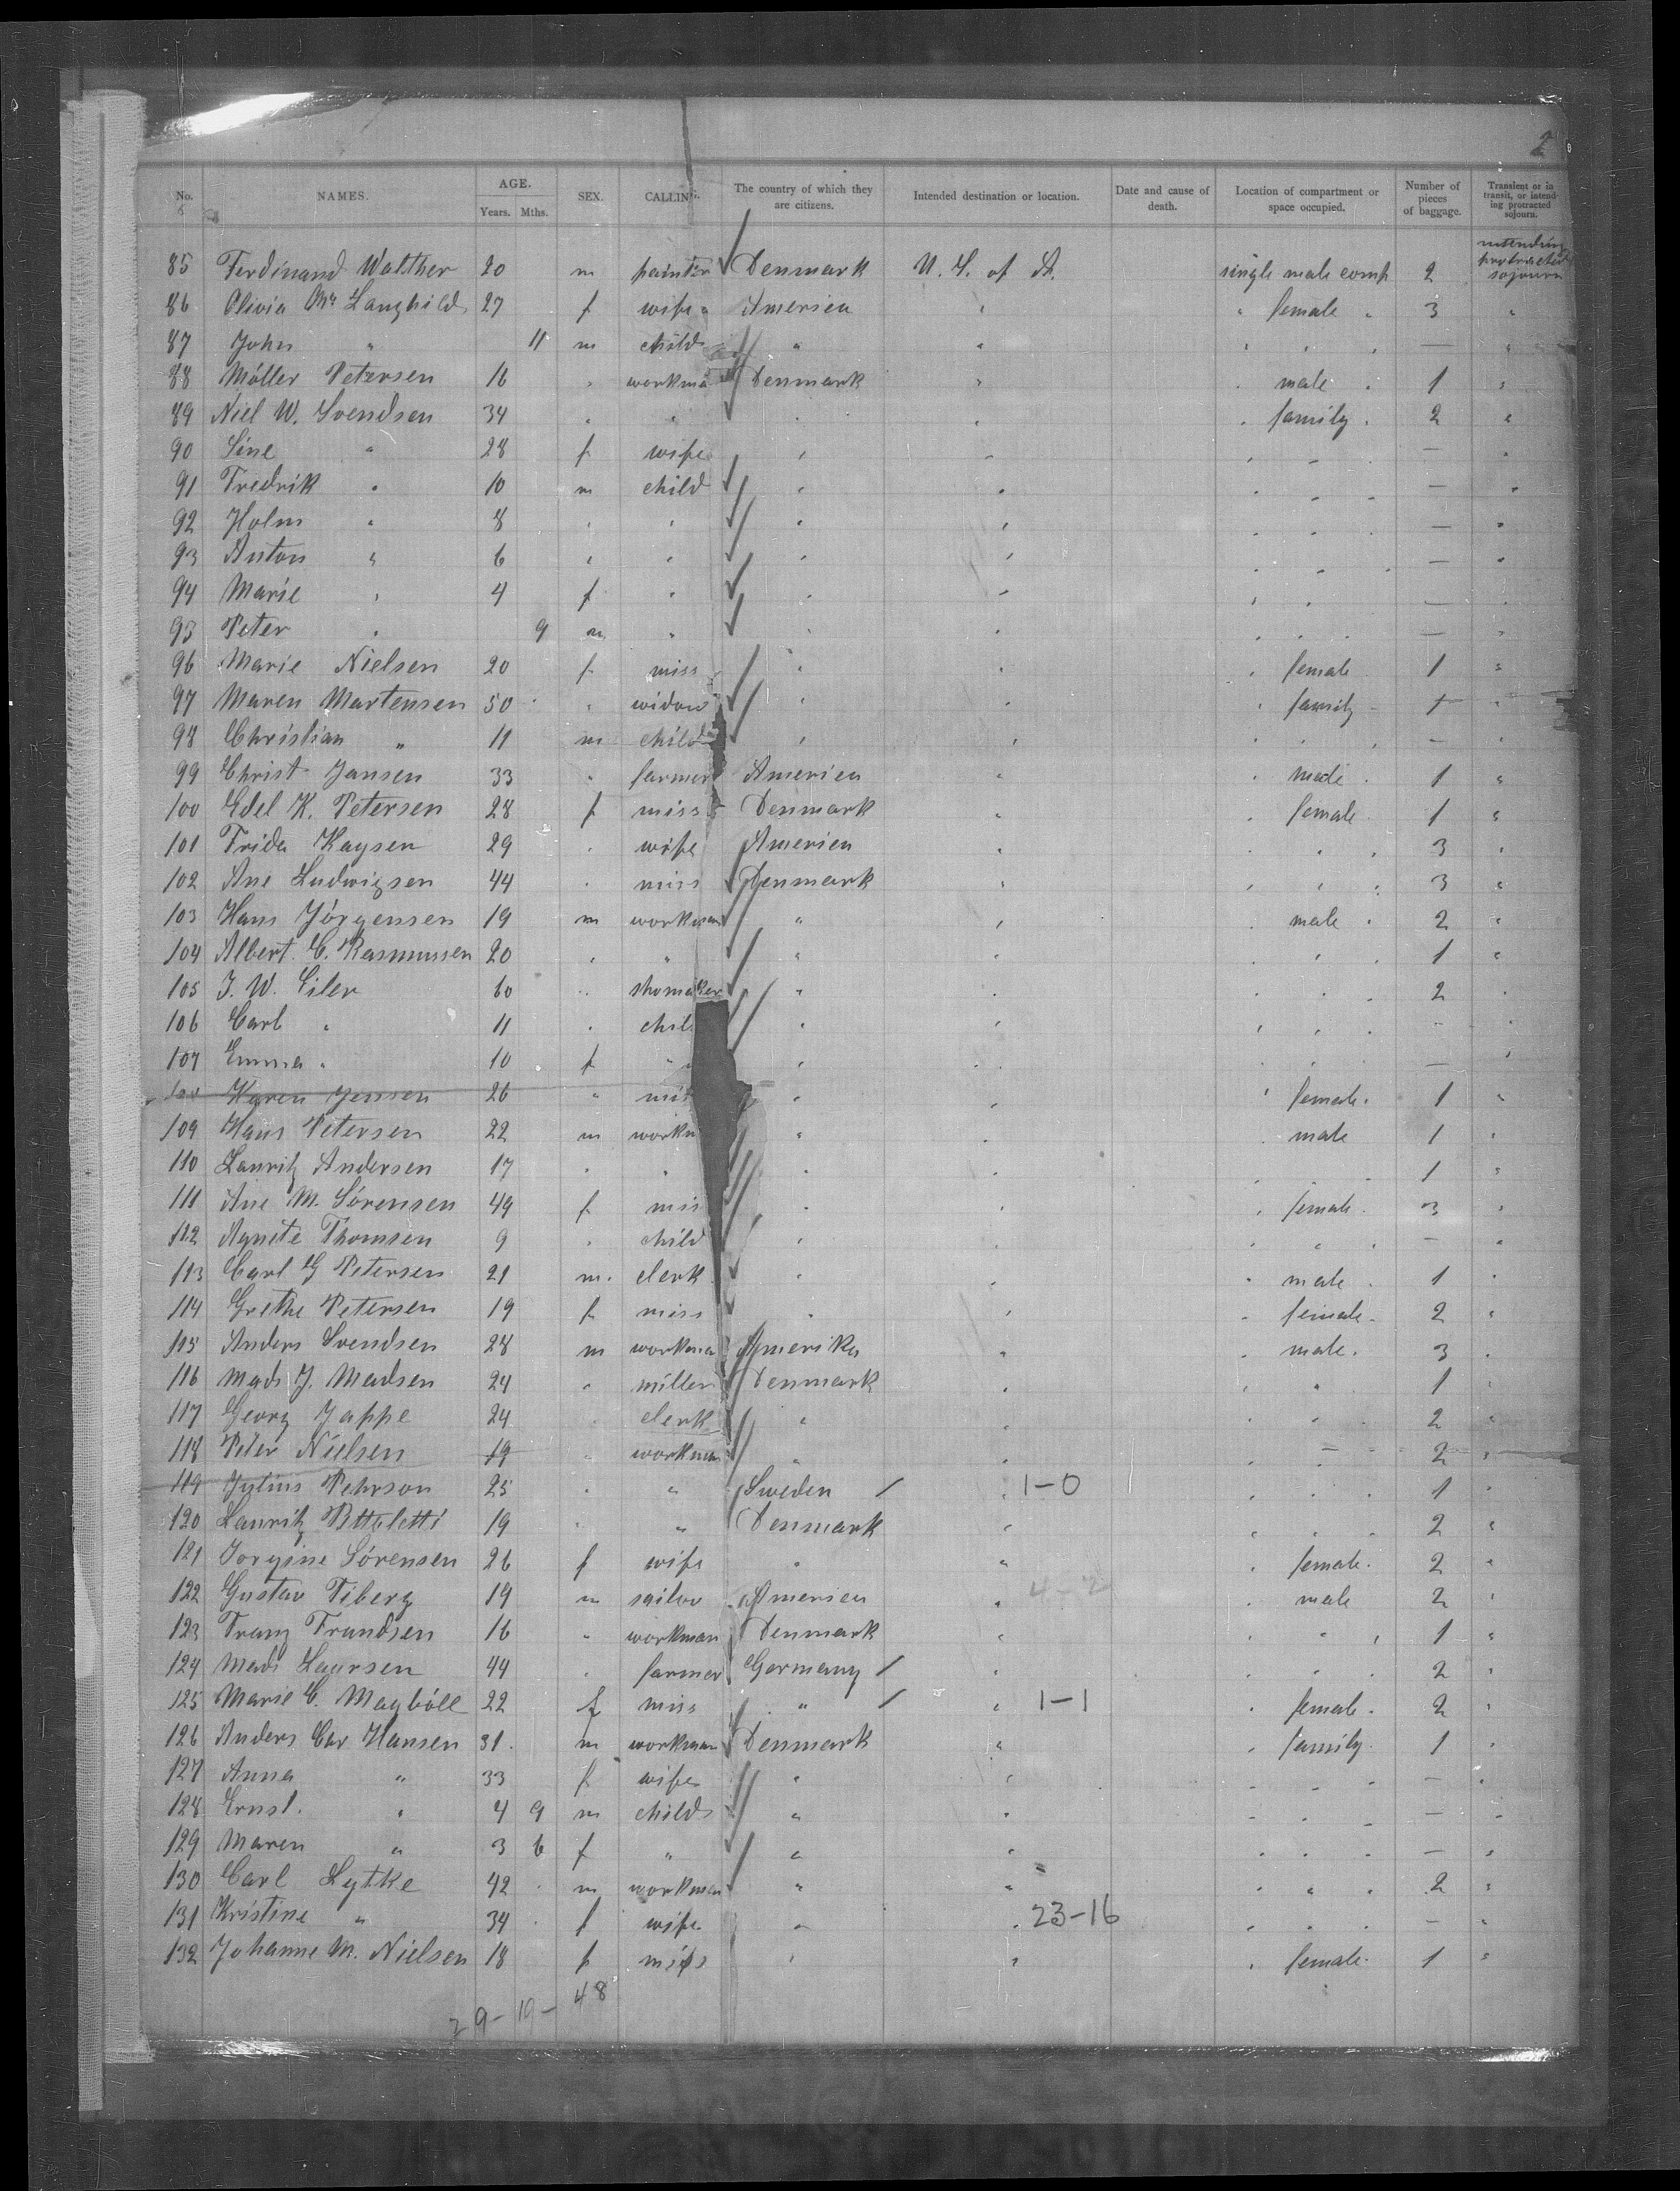 2
No. NAMES. AGE. Years. Mths. SEX. CALLING. The country of which they are citizens. Intended destination or location. Date and cause of death. Location of compartment or space occupied. Number of pieces of baggage. Transient or in transit, or intending protracted sojourn.
85 Ferdinand Walther 20 m painter Denmark U. S. of A. single male comp 2 intending protracted sojourn
86 Olivia Langhild 27 f wife America " " female " 3 "
87 John " 11 m child " " " " " — "
88 Möller Petersen 16 " workma Denmark " " male " 1 "
89 Niel W. Svendsen 34 " " " " " family " 2 "
90 Sine " 28 f wife " " " " " — "
91 Fredrik " 10 m child " " " " " — "
92 Holm " 8 " " " " " " " — "
93 Anton " 6 " " " " " " " — "
94 Marie " 4 f " " " " " — "
95 Peter " 9 m " " " " " " — "
96 Marie Nielsen 20 f miss " " " female 1 "
97 Maren Martensen 50 " widow " " " family " 1 "
98 Christian " 11 m child " " " " " — "
99 Christ Jansen 33 " farmer America " " male " 1 "
100 Edel K. Petersen 28 f miss Denmark " " female " 1 "
101 Frida Kaysen 29 " wife America " " " 3 "
102 Ane Ludwigsen 44 " miss Denmark " " " " 3 "
103 Hans Jörgensen 19 m workman " " " male " 2 "
104 Albert C. Rasmussen 20 " " " " " " " 1 "
105 J. W. Eiler 60 " shomaker " " " " " 2 "
106 Carl " 11 " chil " " " " " "
107 Emma " 10 f " " " " " " — "
108 Karen Jensen 26 " mis " " " female " 1 "
109 Hans Petersen 22 m workm " " " male 1 "
110 Lauritz Andersen 17 " " " " " " 1 "
111 Ane M. Sörensen 49 f mis " " " female " 3 "
112 Agnete Thomsen 9 " child " " " " " — "
113 Carl G Petersen 21 m. clerk " " " male " 1 "
114 Grethe Petersen 19 f miss " " " female " 2 "
115 Anders Svendsen 28 m workman Amerika " " male " 3 "
116 Mads J. Madsen 24 " miller Denmark " " " 1 "
117 Georg Jappe 24 " clerk " " " " " 2 "
118 Peter Nielsen 19 " workman " " " " " 2 "
119 Julius Pehrson 25 " " Sweden / " 1-0 " " " 1 "
120 Lauritz 19 " " Denmark " " " " 2 "
121 Jorgine Sörensen 26 f wife " " " female " 2 "
122 Gustav Tiberg 19 m sailor America " 4-2 " male 2 "
123 Franz Frandsen 16 " workman Denmark " " " " 1 "
124 Mads Laursen 44 " farmer Germany / " " " " 2 "
125 Marie C. Mayböll 22 f miss " / " 1-1 " female " 2 "
126 Anders Car Hansen 31 m workman Denmark " " family " 1 "
127 Anna " 33 f wife " " " " " — "
128 Ernst. " 4 9 m child " " " " " — "
129 Maren " 3 6 f " " " " " " — "
130 Carl Lytke 42 m workman " " " " " 2 "
131 Kristine " 34 f wife " " 23-16 " " " — "
132 Johanne M. Nielsen 18 f miss " " " female " 1 "
29-19- 48